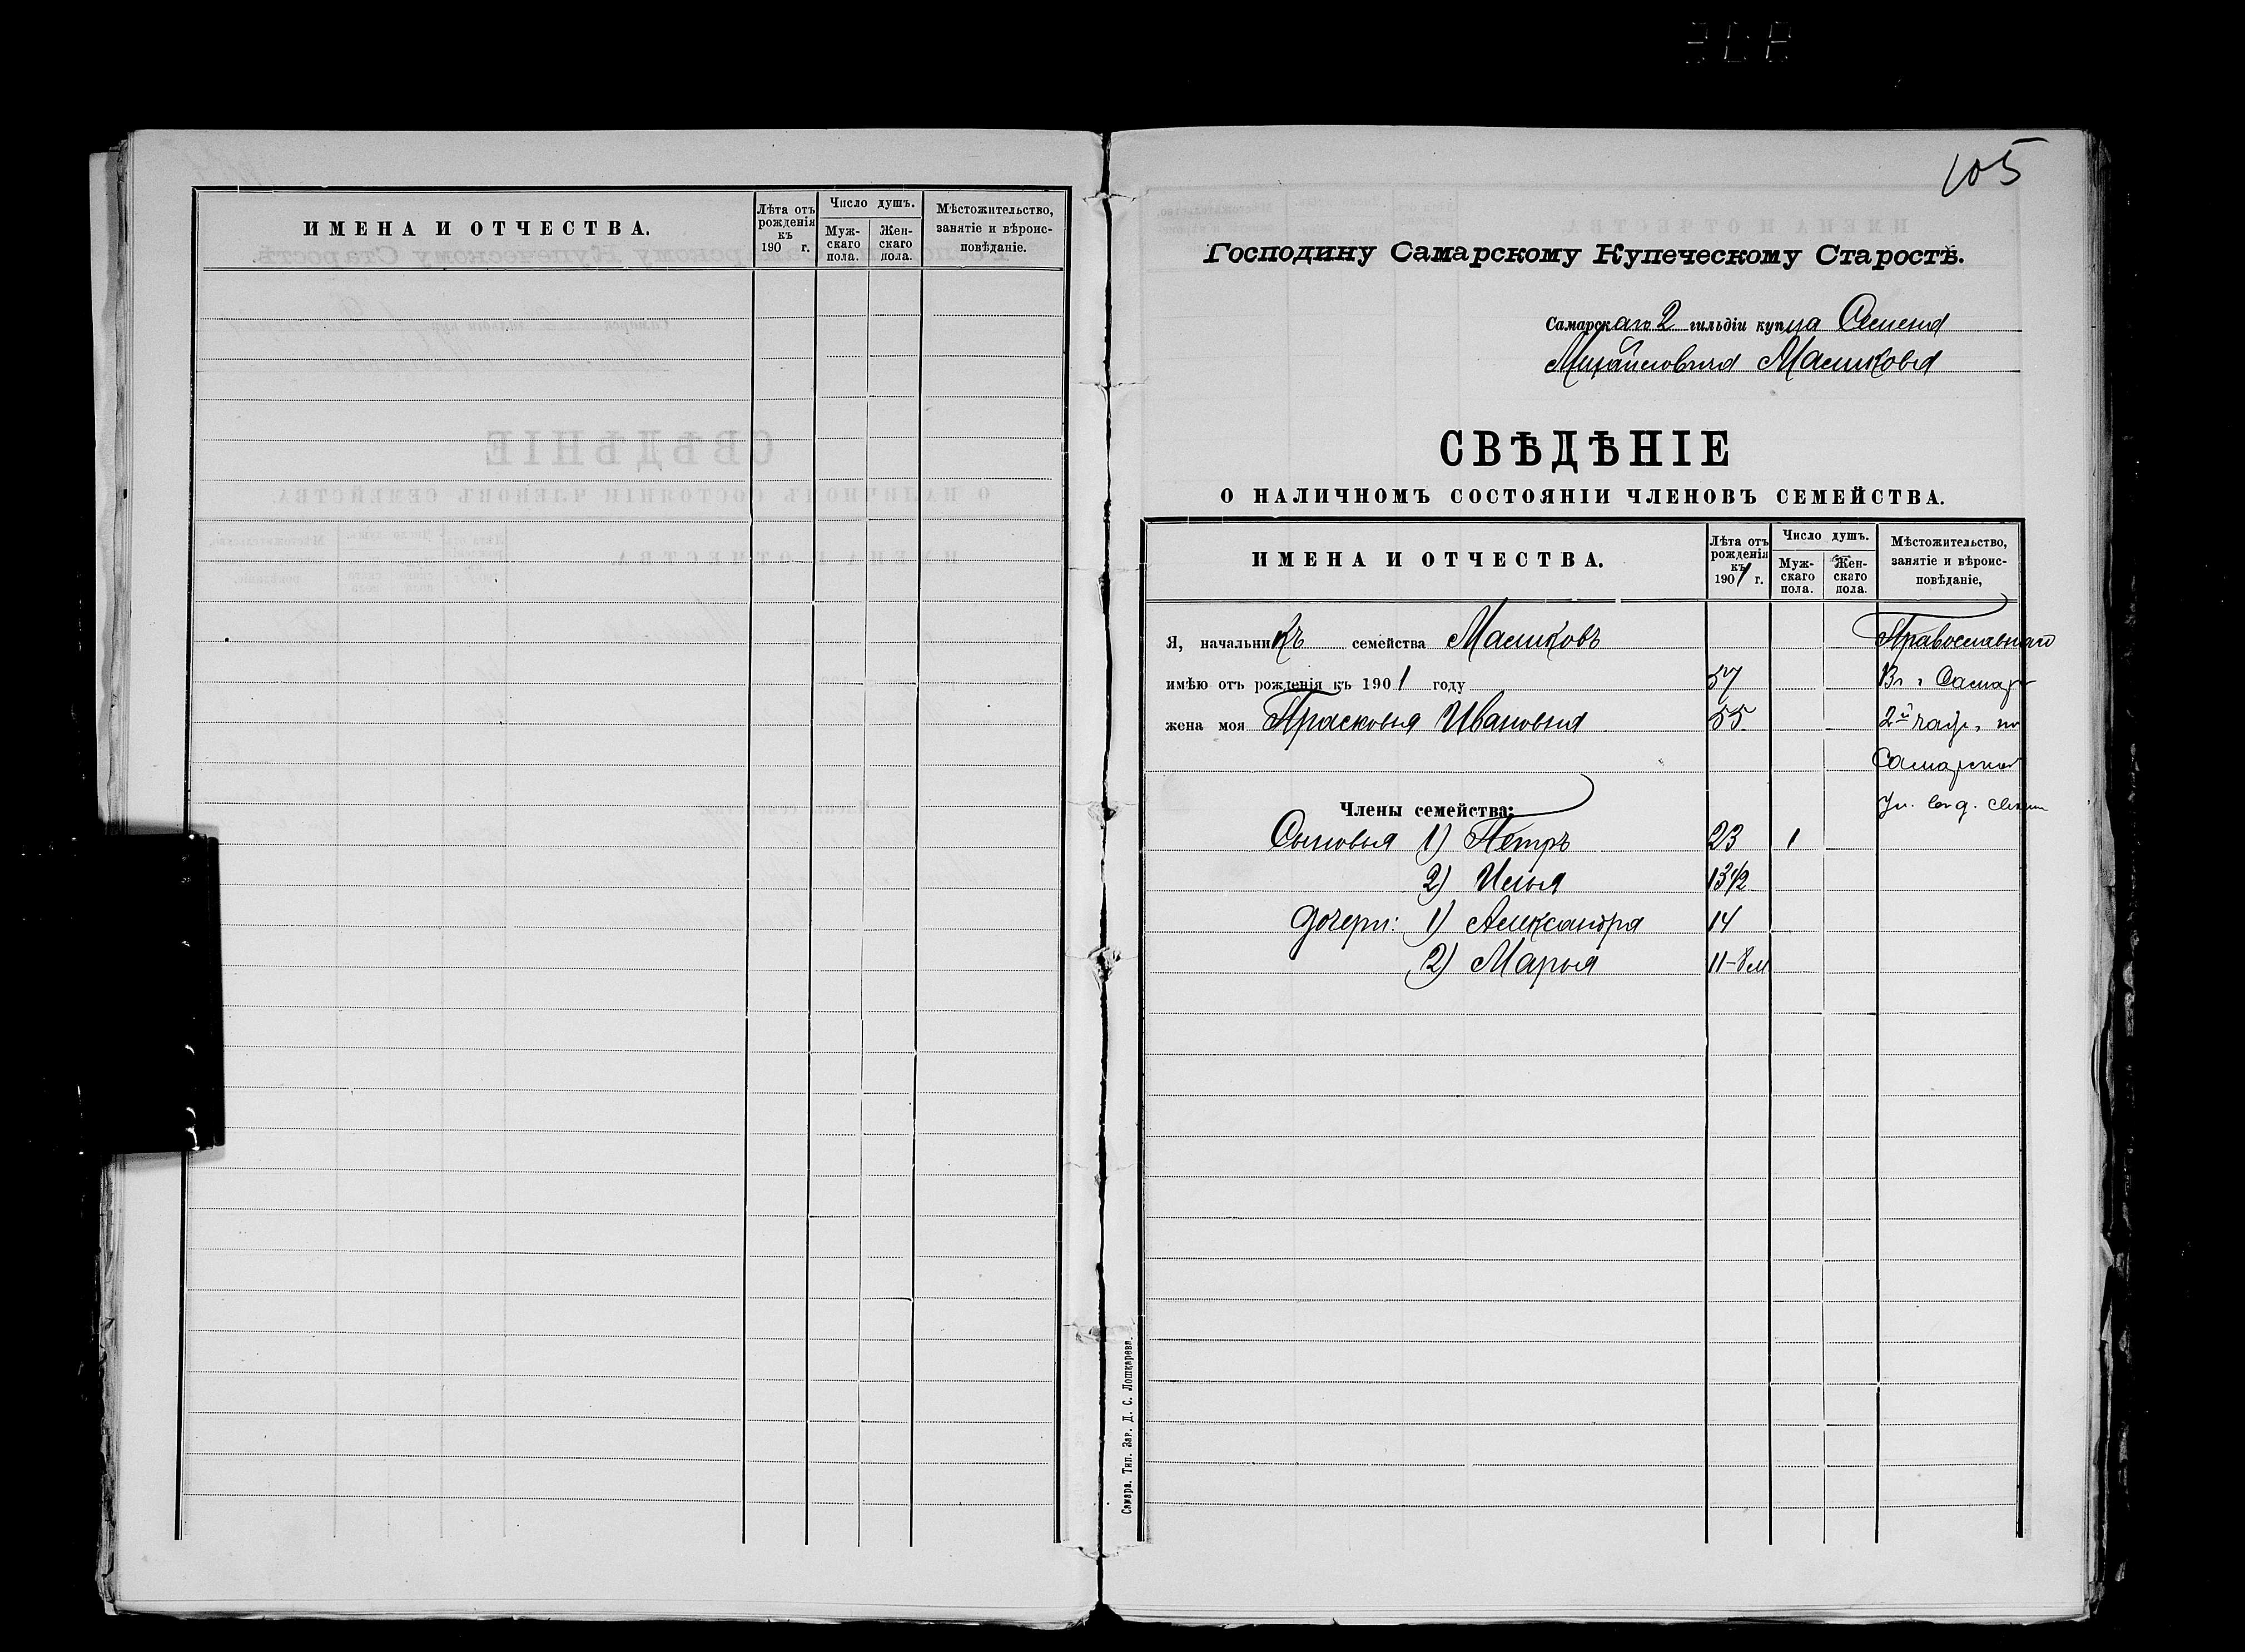 ИМЕНА И ОТЧЕСТВА.
Лѣта отъ рожденія къ 190 г.
Число душъ.
Муж-скаго пола.
Жен-скаго пола.
Мѣстожительство, занятіе и вѣроис-повѣданіе.
105
Господину Самарскому Купеческому Старостѣ.
Самарскаго 2 гильдіи купца Семена
Михайловича Машкова
СВѢДѢНІЕ
О НАЛИЧНОМЪ СОСТОЯНІИ ЧЛЕНОВЪ СЕМЕЙСТВА.
ИМЕНА И ОТЧЕСТВА.
Лѣта отъ рожденія къ 1901 г.
Число душъ.
Муж-скаго пола.
Жен-скаго пола.
Мѣстожительство, занятіе и вѣроис-повѣданіе,
Я, начальникъ семейства Машковъ Православнаго
имѣю отъ рожденія къ 1901 году 57 Въ г Самарѣ
жена моя Прасковья Ивановна 55 2й части, по
Самарской
Члены семейства: Ул.
Сыновья 1) Петръ 23 1
2) Илья 13 1/2
Дочери: 1) Александра 14
2) Марья 11-8 м
Самара. Тип. Заг. Д. С. Лошкарева.